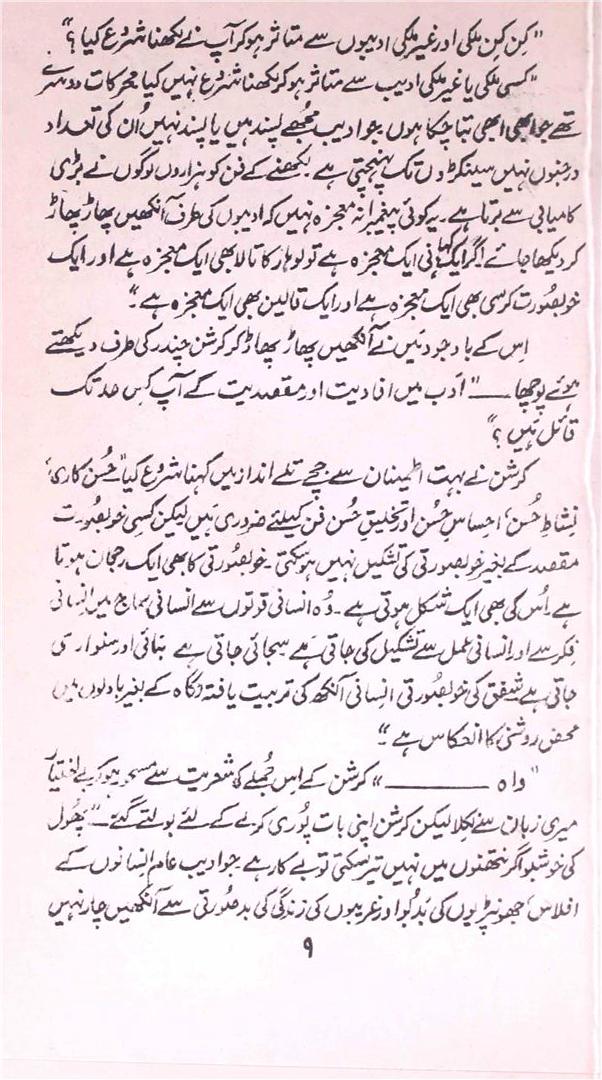 "کِن کِن مُلکی اور غیر مُلکی ادیبوں سے متاثر ہو کر آپ نے لکھنا شروع کیا؟"
"کسی مُلکی یا غیر مُلکی ادیب سے متاثر ہو کر لکھنا شروع نہیں کیا محرکات دوسرے
تھے جو ابھی ابھی بتا چکا ہوں جو ادیب مُجھے پسند ہیں یا پسند نہیں اُن کی تعداد
درجنوں نہیں سینکڑوں تک پہنچتی ہے۔ لکھنے کے فن کو ہزاروں لوگوں نے بڑی
کامیابی سے برتا ہے۔ یہ کوئی پیغمبرانہ معجزہ نہیں کہ ادیبوں کی طرف آنکھیں پھاڑ پھاڑ
کر دیکھا جائے۔ اگر ایک کہانی ایک معجزہ ہے تو لوہار کا تالا بھی ایک معجزہ ہے اور ایک
خوبصُورت کرسی بھی ایک معجزہ ہے اور ایک قالین بھی ایک معجزہ ہے۔"
اِس کے باوجود میں نے آنکھیں پھاڑ پھاڑ کر کرشن چندر کی طرف دیکھتے
ہوئے پوچھا ـــــ "ادَب میں افادیت اور مقصدیت کے آپ کِس حد تک
قائل ہَیں؟"
کرشن نے بہت اطمینان سے جچے تلے انداز میں کہنا شروع کیا "حُسن کاری،
نِشاطِ حُسن، احساسِ حُسن اور تخلیقِ حُسن فن کیلئے ضروری ہَیں لیکن کسی خوبصُورت
مقصد کے بغیر خوبصورتی کی تشکیل نہیں ہو سکتی۔ خوبصُورتی کا بھی ایک رجحان ہوتا
ہے۔ اُس کی بھی ایک شکل ہوتی ہے۔ وُہ انسانی قدروں سے انسانی سماج میں انسانی
فِکر سے اور انسانی عمل سے تشکیل کی جاتی ہَے سجائی جاتی ہے بنائی اور سنواری
جاتی ہے شفق کی خوبصُورتی انسانی آنکھ کی تربیت یافتہ نگاہ کے بغیر بادلوں میں
محض روشنی کا انعکاس ہے۔"
"واہ ــــــــــــ" کرشن کے اِس جُملے کی شعریت سے مسحور ہو کر بے اختیار
میری زبان سے نکلا لیکن کرشن اپنی بات پُوری کرنے کے لئے بولتے گئے۔ "پھُول
کی خوشبو اگر نتھنوں میں نہیں تیر سکتی تو بے کار ہے۔ جو ادیب عام انسانوں کے
افلاس، جھونپڑیوں کی بَدبُو اور غریبوں کی زندگی کی بد صُورتی سے آنکھیں چار نہیں
۹